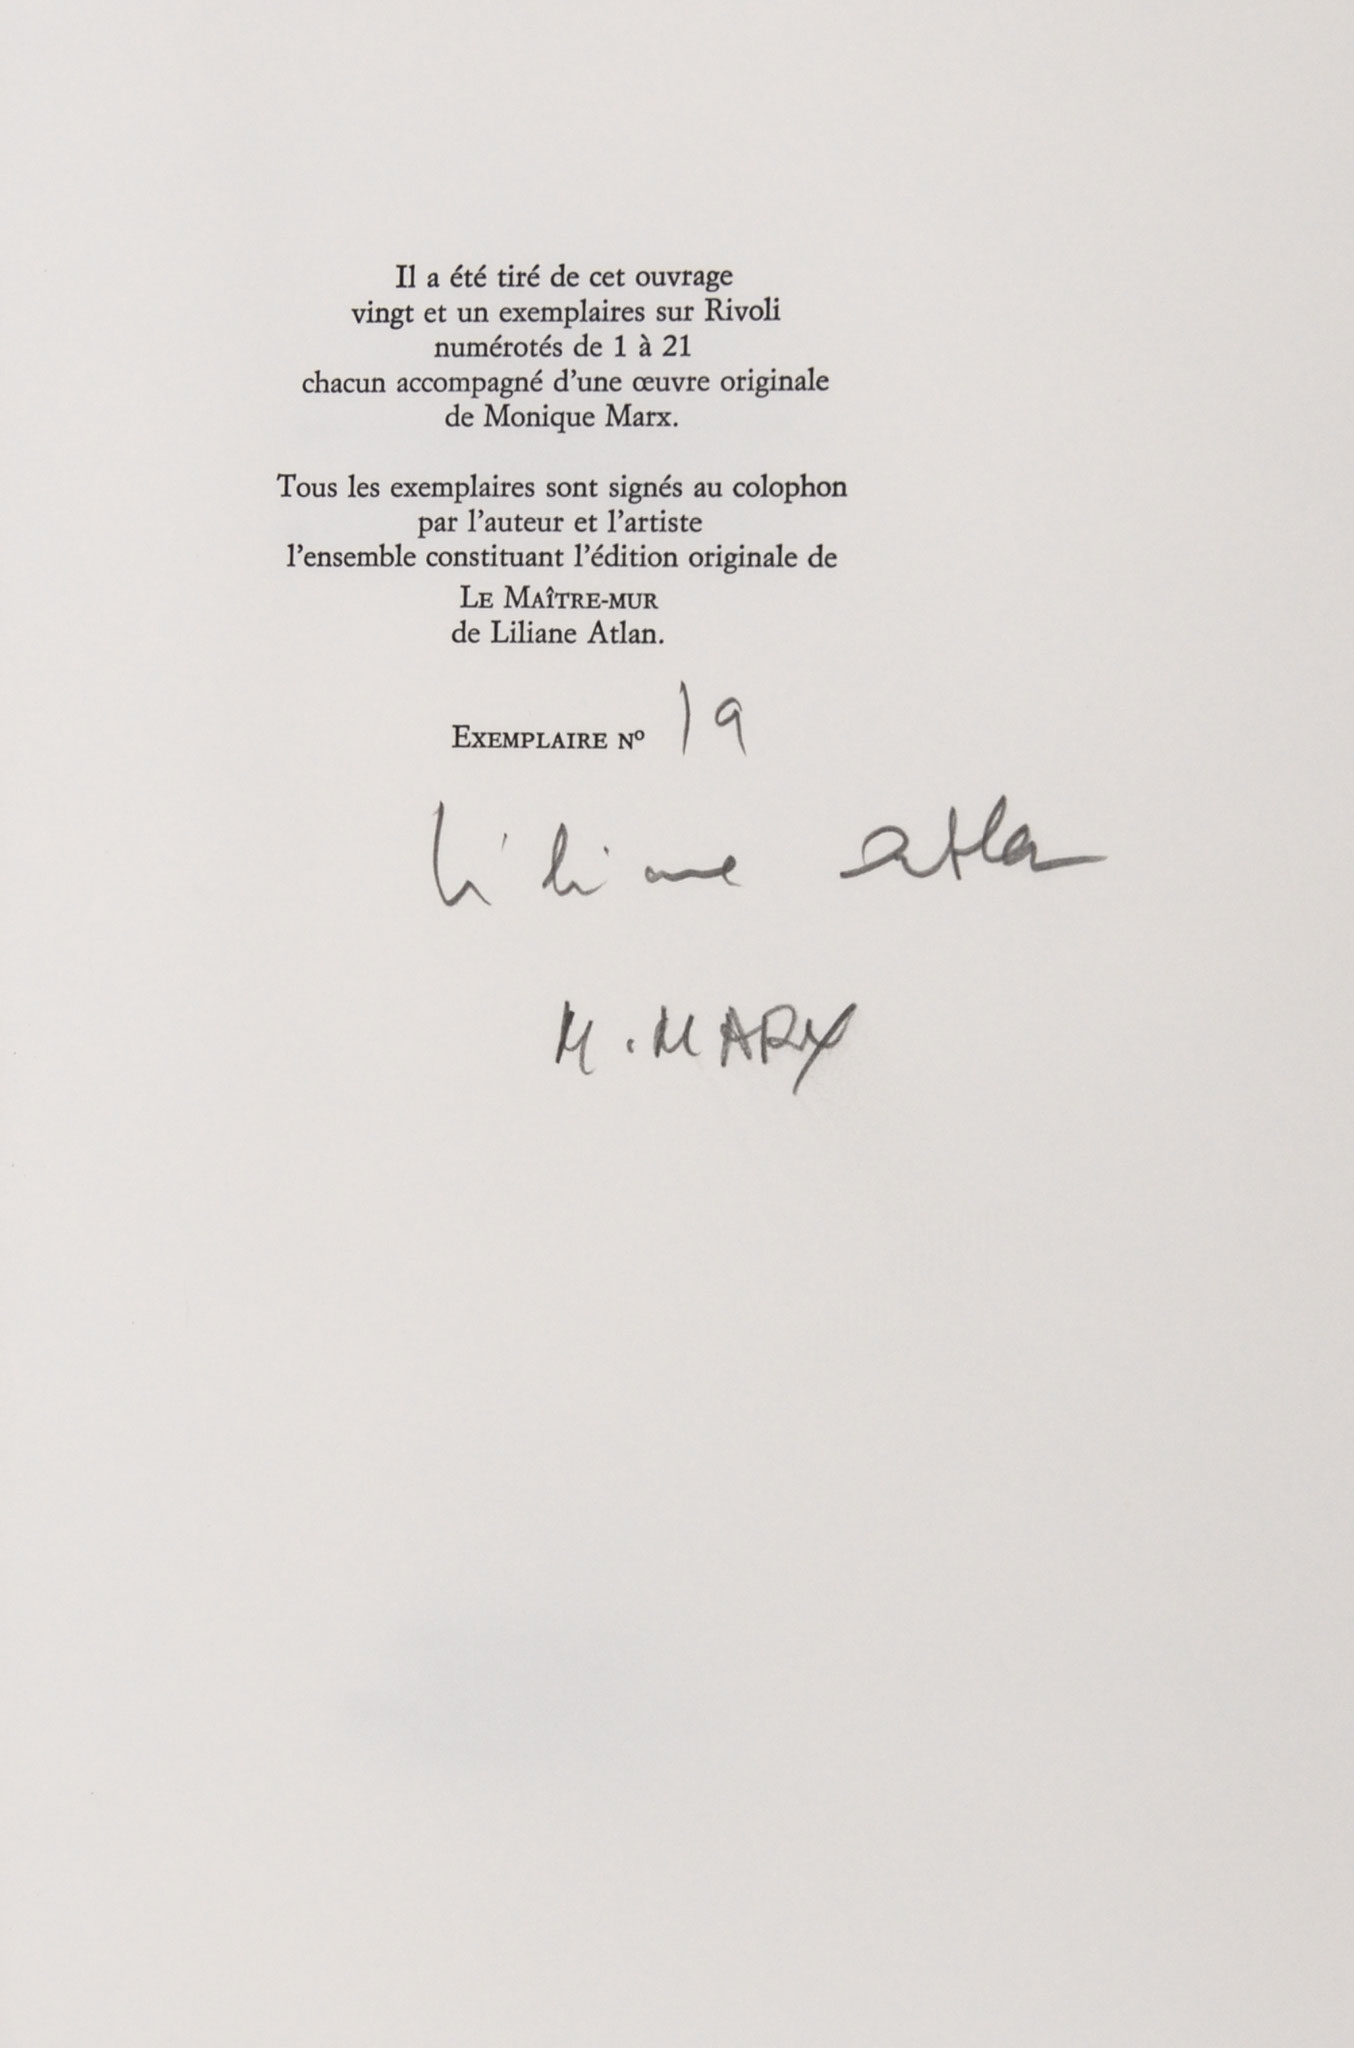 Il a été tiré de cet ouvrage
vingt et un exemplaires sur Rivoli
numérotés de 1 à 21
chacun accompagné d’une œuvre originale
de Monique Marx.
Tous les exemplaires sont signés au colophon
par l’auteur et l’artiste
l’ensemble constituant l’édition originale de
LE MAÎTRE-MUR
de Liliane Atlan.
EXEMPLAIRE Nº 19
Liliane Atlan
M. MARX